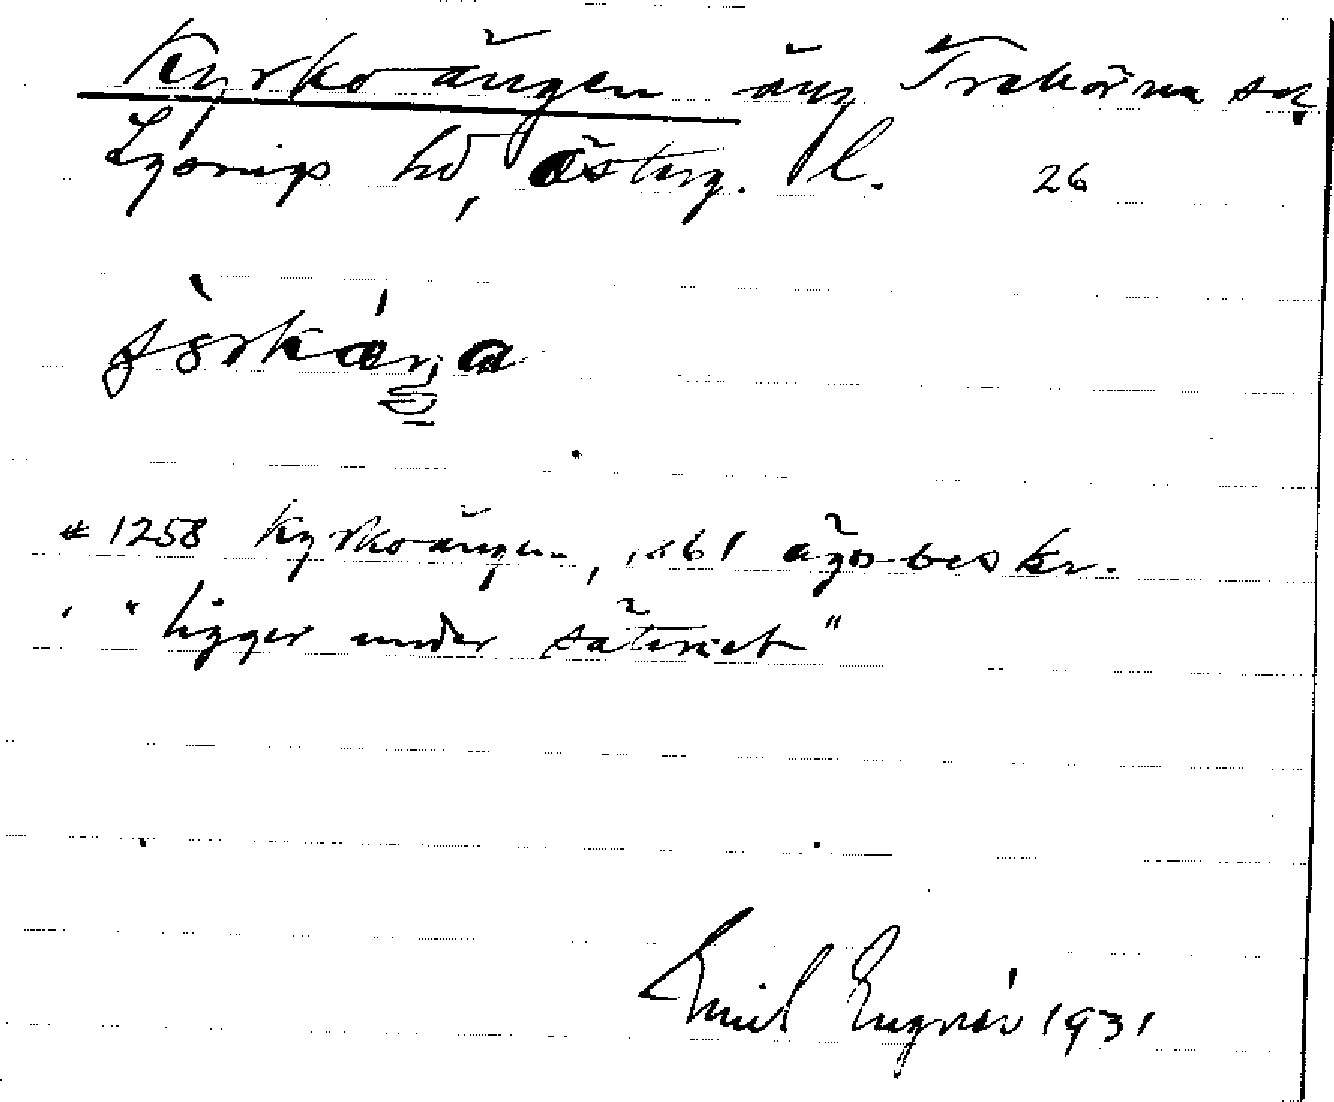 Kyrkoängen äng Trehörna sn
Lysings hd, Österg. l. 26
* 1258 Kyrkoängen, 1861 ägobeskr.
" ligger under säteriet "
Emil Engnér 1931